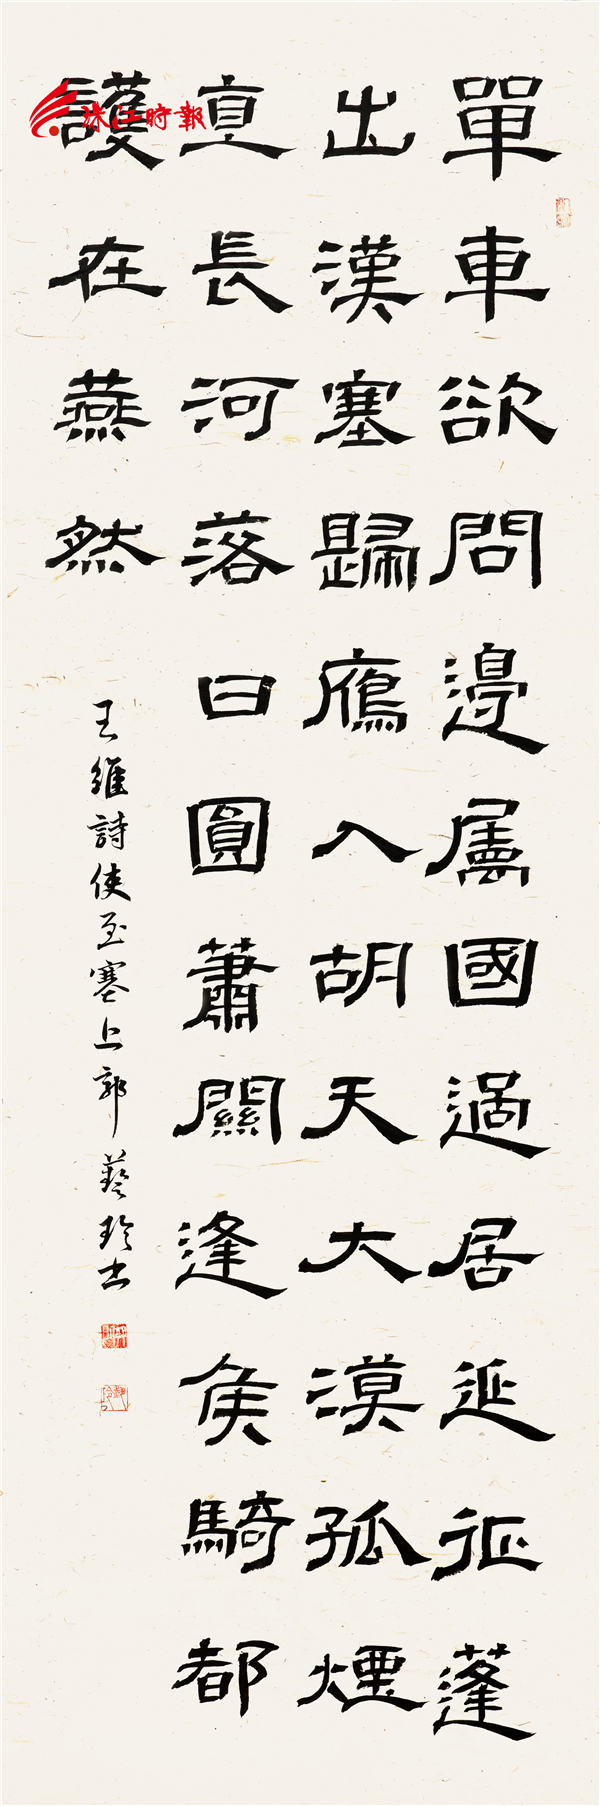 單車欲問邊屬國過居延征蓬
出漢塞歸鴈入胡天大漠孤煙
直長河落日圓蕭關逢侯騎都
護在燕然
王維詩使至塞上郭藝玲书
珠江時報